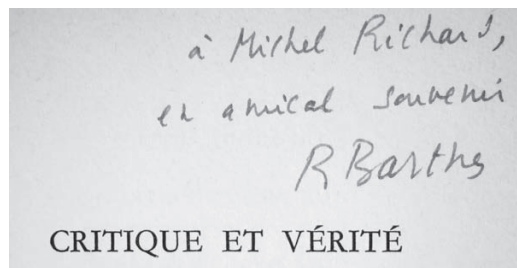 à Michel Richard,
en amical souvenir
R Barthes
CRITIQUE ET VÉRITÉ